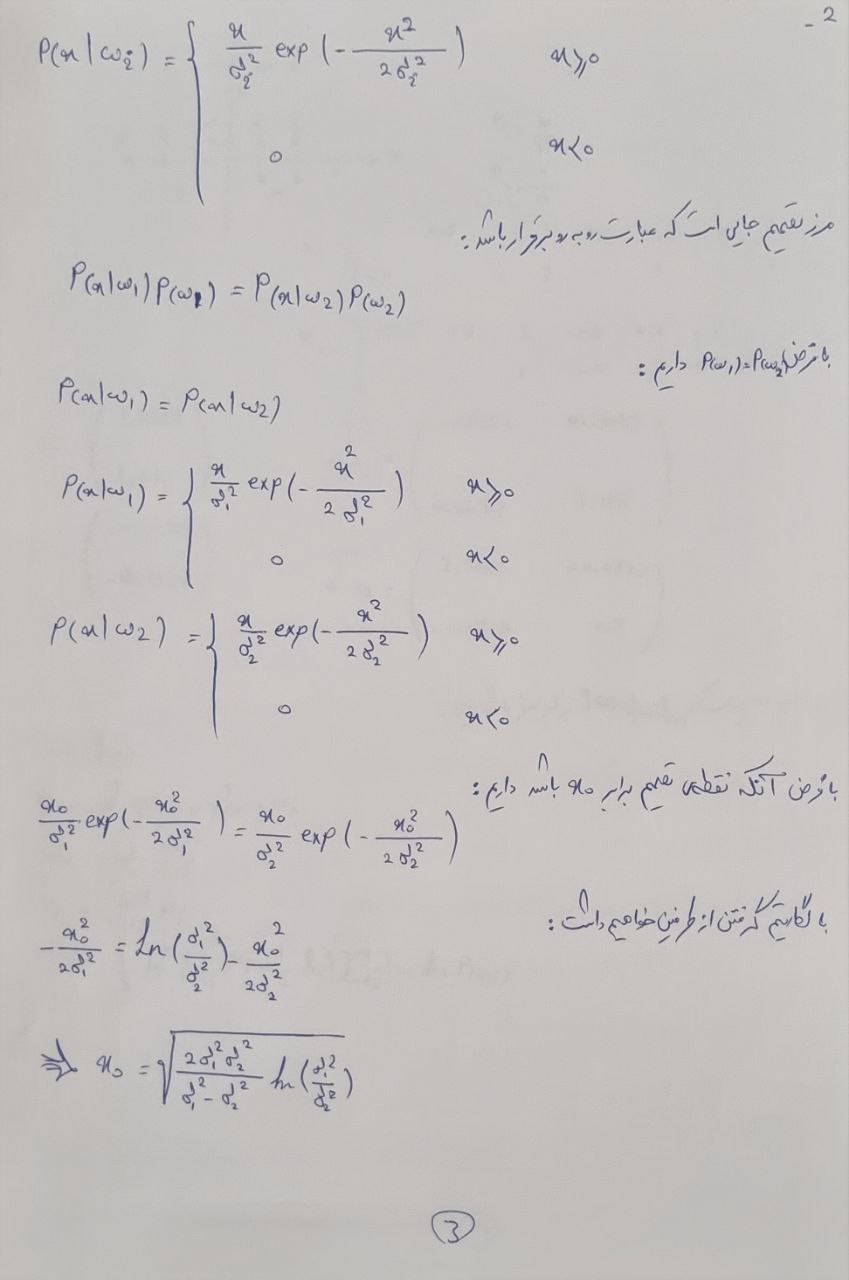 2-
P(x|ω_i) = { x/σ_i^2 exp(- x^2/2σ_i^2) x≥0
0 x<0
مرز تصمیم جایی است که عبارت روبه‌رو برقرار باشد:
P(x|ω1)P(ω1) = P(x|ω2)P(ω2)
با فرض P(ω1)=P(ω2) داریم:
P(x|ω1) = P(x|ω2)
P(x|ω1) = { x/σ1^2 exp(- x^2/2σ1^2) x≥0
0 x<0
P(x|ω2) = { x/σ2^2 exp(- x^2/2σ2^2) x≥0
0 x<0
با فرض آنکه نقطه‌ی تصمیم برابر x0 باشد داریم:
x0/σ1^2 exp(- x0^2/2σ1^2) = x0/σ2^2 exp(- x0^2/2σ2^2)
با لگاریتم گرفتن از طرفین خواهیم داشت:
- x0^2/2σ1^2 = ln(σ1^2/σ2^2) - x0^2/2σ2^2
⇒ x0 = √(2σ1^2σ2^2/(σ1^2-σ2^2) ln(σ1^2/σ2^2))
3